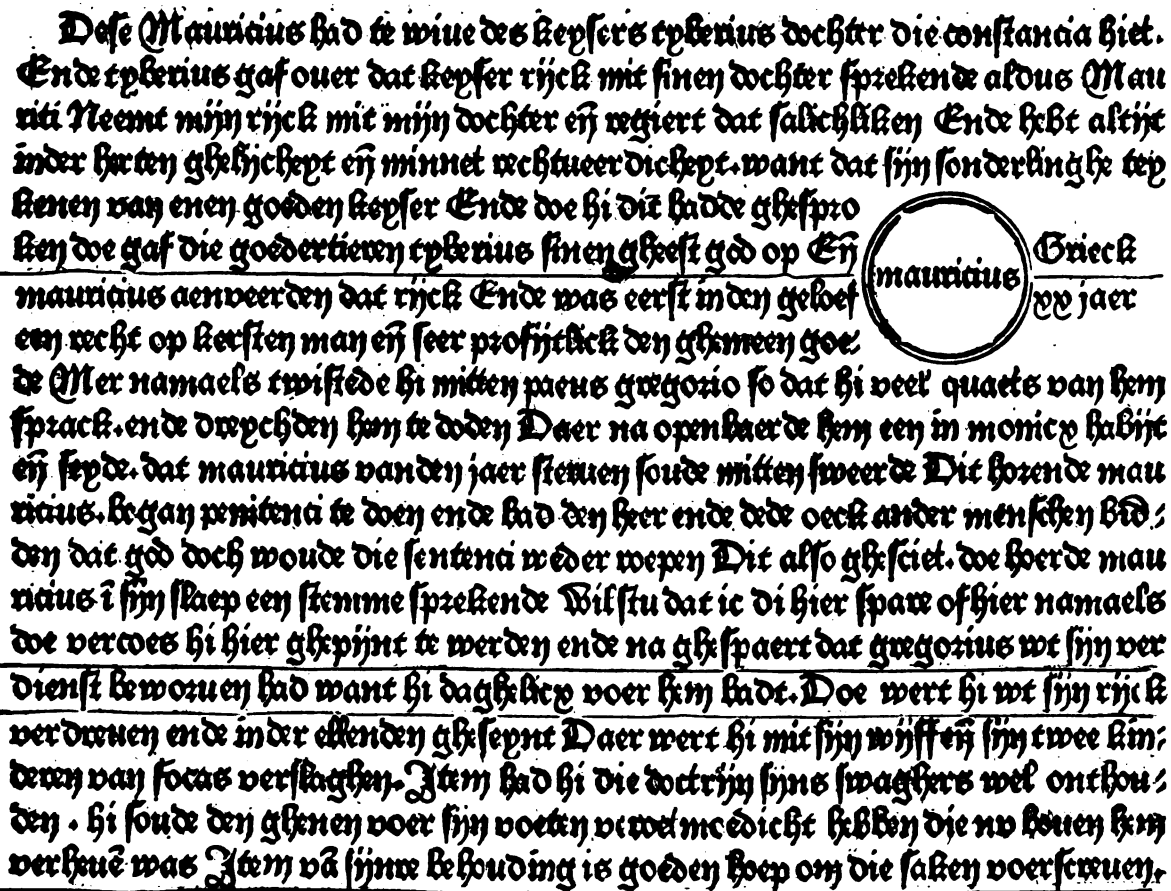 Dese Mauricius had te wiue des keysers tyberius dochter die constancia hiet.
Ende tyberius gaf ouer dat keyser rijck mit sinen dochter sprekende aldus Mau
riti Neemt mijn rijck mit mijn dochter eñ regiert dat salichliken Ende hebt altijt
inder herten ghelijcheyt eñ minnet rechtueerdicheyt. want dat sijn sonderlinghe tey
kenen van enen goeden keyser Ende doe hi dit hadde ghespro
ken doe gaf die goedertieren tyberius sinen gheest god op Eñ
mauricius
Grieck
xx jaer
mauricius aenveerden dat rijck Ende was eerst inden geloef
een recht op kersten man eñ seer profijtlick den ghemeen goe-
de Mer namaels twistede hi mitten paeus gregorio so dat hi veel quaets van hem
sprack. ende dreychden hem te doden Daer na openbaerde hem een in monicx habijt
eñ seyde. dat mauricius vanden jaer steruen soude mitten sweerde Dit horende mau
ricius. began penitenci te doen ende bad den heer ende dede oeck ander menschen bid-
den dat god doch woude die sentenci weder roepen Dit also ghesciet. doe hoerde mau
ricius ī sijn slaep een stemme sprekende Wilstu dat ic di hier spare of hier namaels
doe vercoes hi hier ghepijnt te werden ende na ghespaert dat gregorius wt sijn ver
dienst beworuen had want hi daghelicx voer hem badt. Doe wert hi wt sijn rijck
verdreuen ende inder ellenden gheseynt Daer wert hi mit sijn wijff eñ sijn twee kin-
deren van focas verslaghen. Item had hi die doctrijn sijns swaghers wel onthou-
den. hi soude den ghenen voer sijn voeten oetmoedicht hebben die nv bouen hem
verheuē was Item vā sijnre behouding is goeden hoep om die saken voerscreuen.